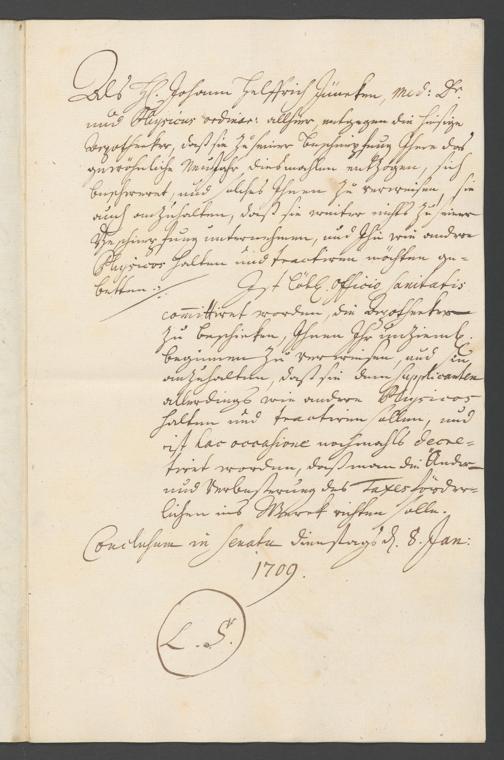 Als H. Johann Helffrich Jüncken, Med: Dr.
und Physicus ordinar: allhier, entgegen die hiesige
Apothecker, daß sie zu seiner Beschimpfung Ihme das
gewöhnliche Neujahr diesmahlen entzogen, sich
beschweret, und, solches Ihnen zu verweisen, sie
auch anzuhalten, daß sie weiter nichts zu seiner
Beschimpfung unternehmen, und Ihn wie andere
Physicos halten und tractiren möchten ge-
betten:
Ist Löbl. Officio Sanitatis
committiret worden, die Apothecker
zu beschicken, Ihnen Ihr unziemb.
beginnen zu verweisen, und sie
anzuhalten, daß sie dem Supplicanten
allerdings wie andere Physicos
halten und tractiren sollen, und
ist hac occasione nochmahls decre-
tiret worden, daß man die Änder-
und Verbesserung des Taxes förder-
lichen ins Werck richten solle.
Conclusum in Senatu Dienstags d. 8. Jan:
1709.
L. S.